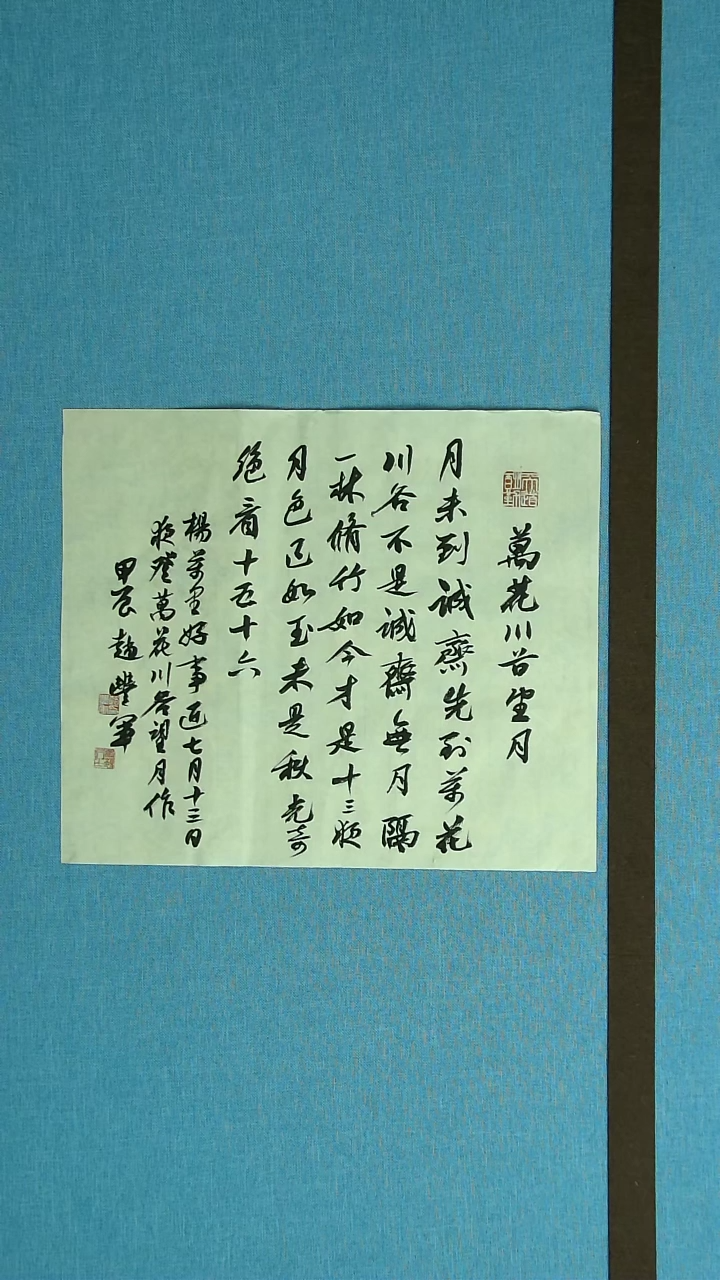 萬花川谷望月
月未到誠齋先到萬花
川谷不是誠齋無月隔
一林脩竹如今才是十三夜
月色已如玉未是秋光奇
絕看十五十六
楊萬里好事近七月十三日
夜登萬花川谷望月作
甲辰趙豐軍